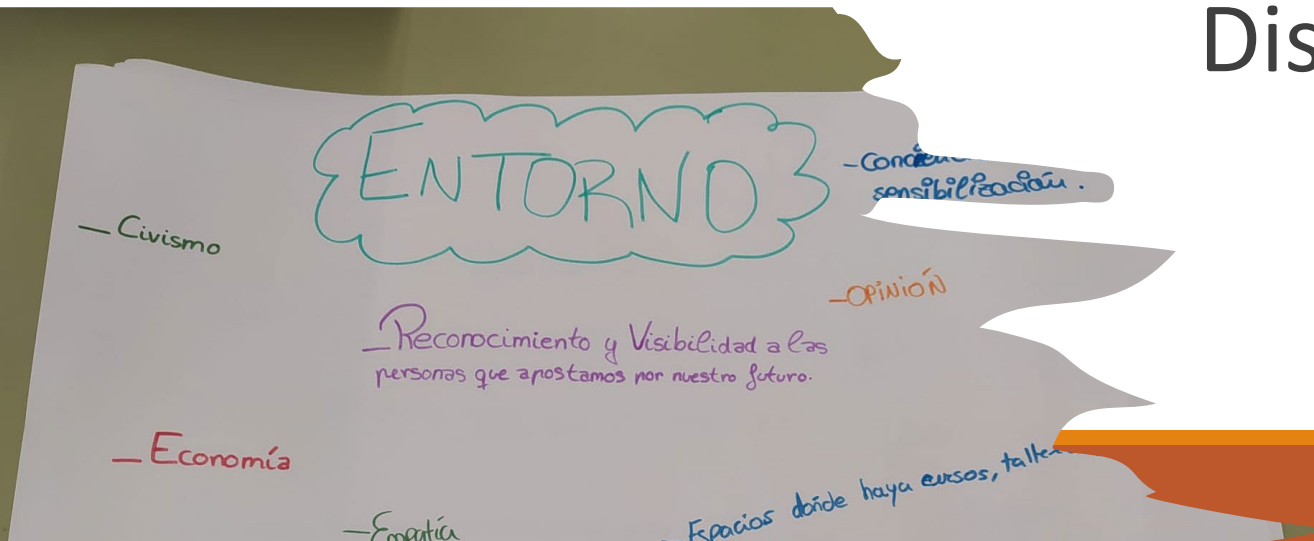 Dis
ENTORNO
- sensibilización.
- Civismo
- OPINIÓN
- Reconocimiento y Visibilidad a las
personas que apostamos por nuestro futuro.
- Economía
- Espacios donde haya cursos,
- Empatía